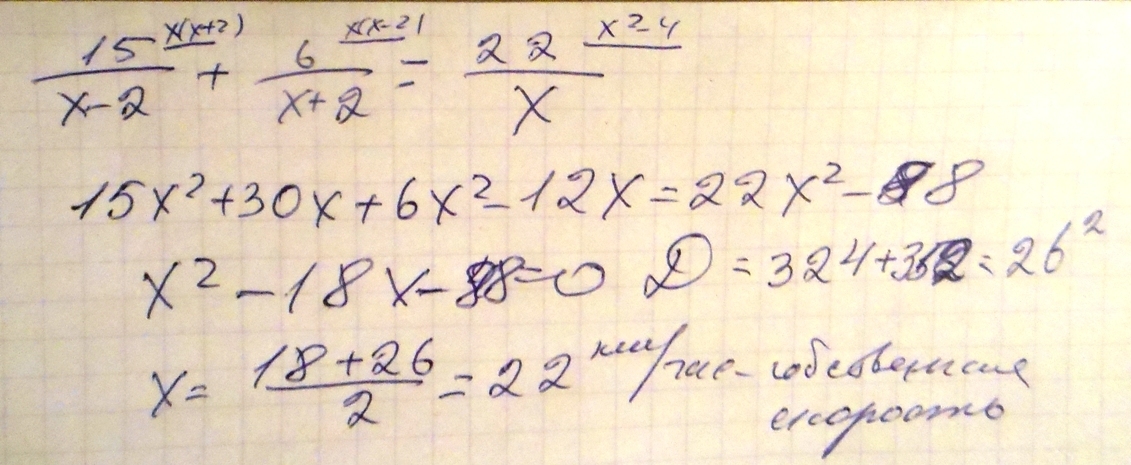 15/(x-2) x(x+2) + 6/(x+2) x(x-2) = 22/x x²-4
15x²+30x+6x²-12x=22x²-88
x²-18x-88=0 D=324+352=26²
x=(18+26)/2=22 км/час - собственная
скорость